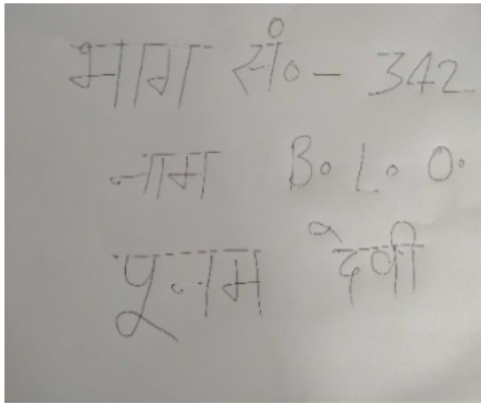 भाग सं०- 342
नाम B.L.O.
पूनम देवी